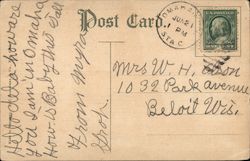 Post Card.
OMAHA
JUN 21
PM
STA. C
Mrs W. H.
1032 Park avenue
Beloit Wis.
Hello how are
you I am in Omaha
How is Baby this Fall
From Myra